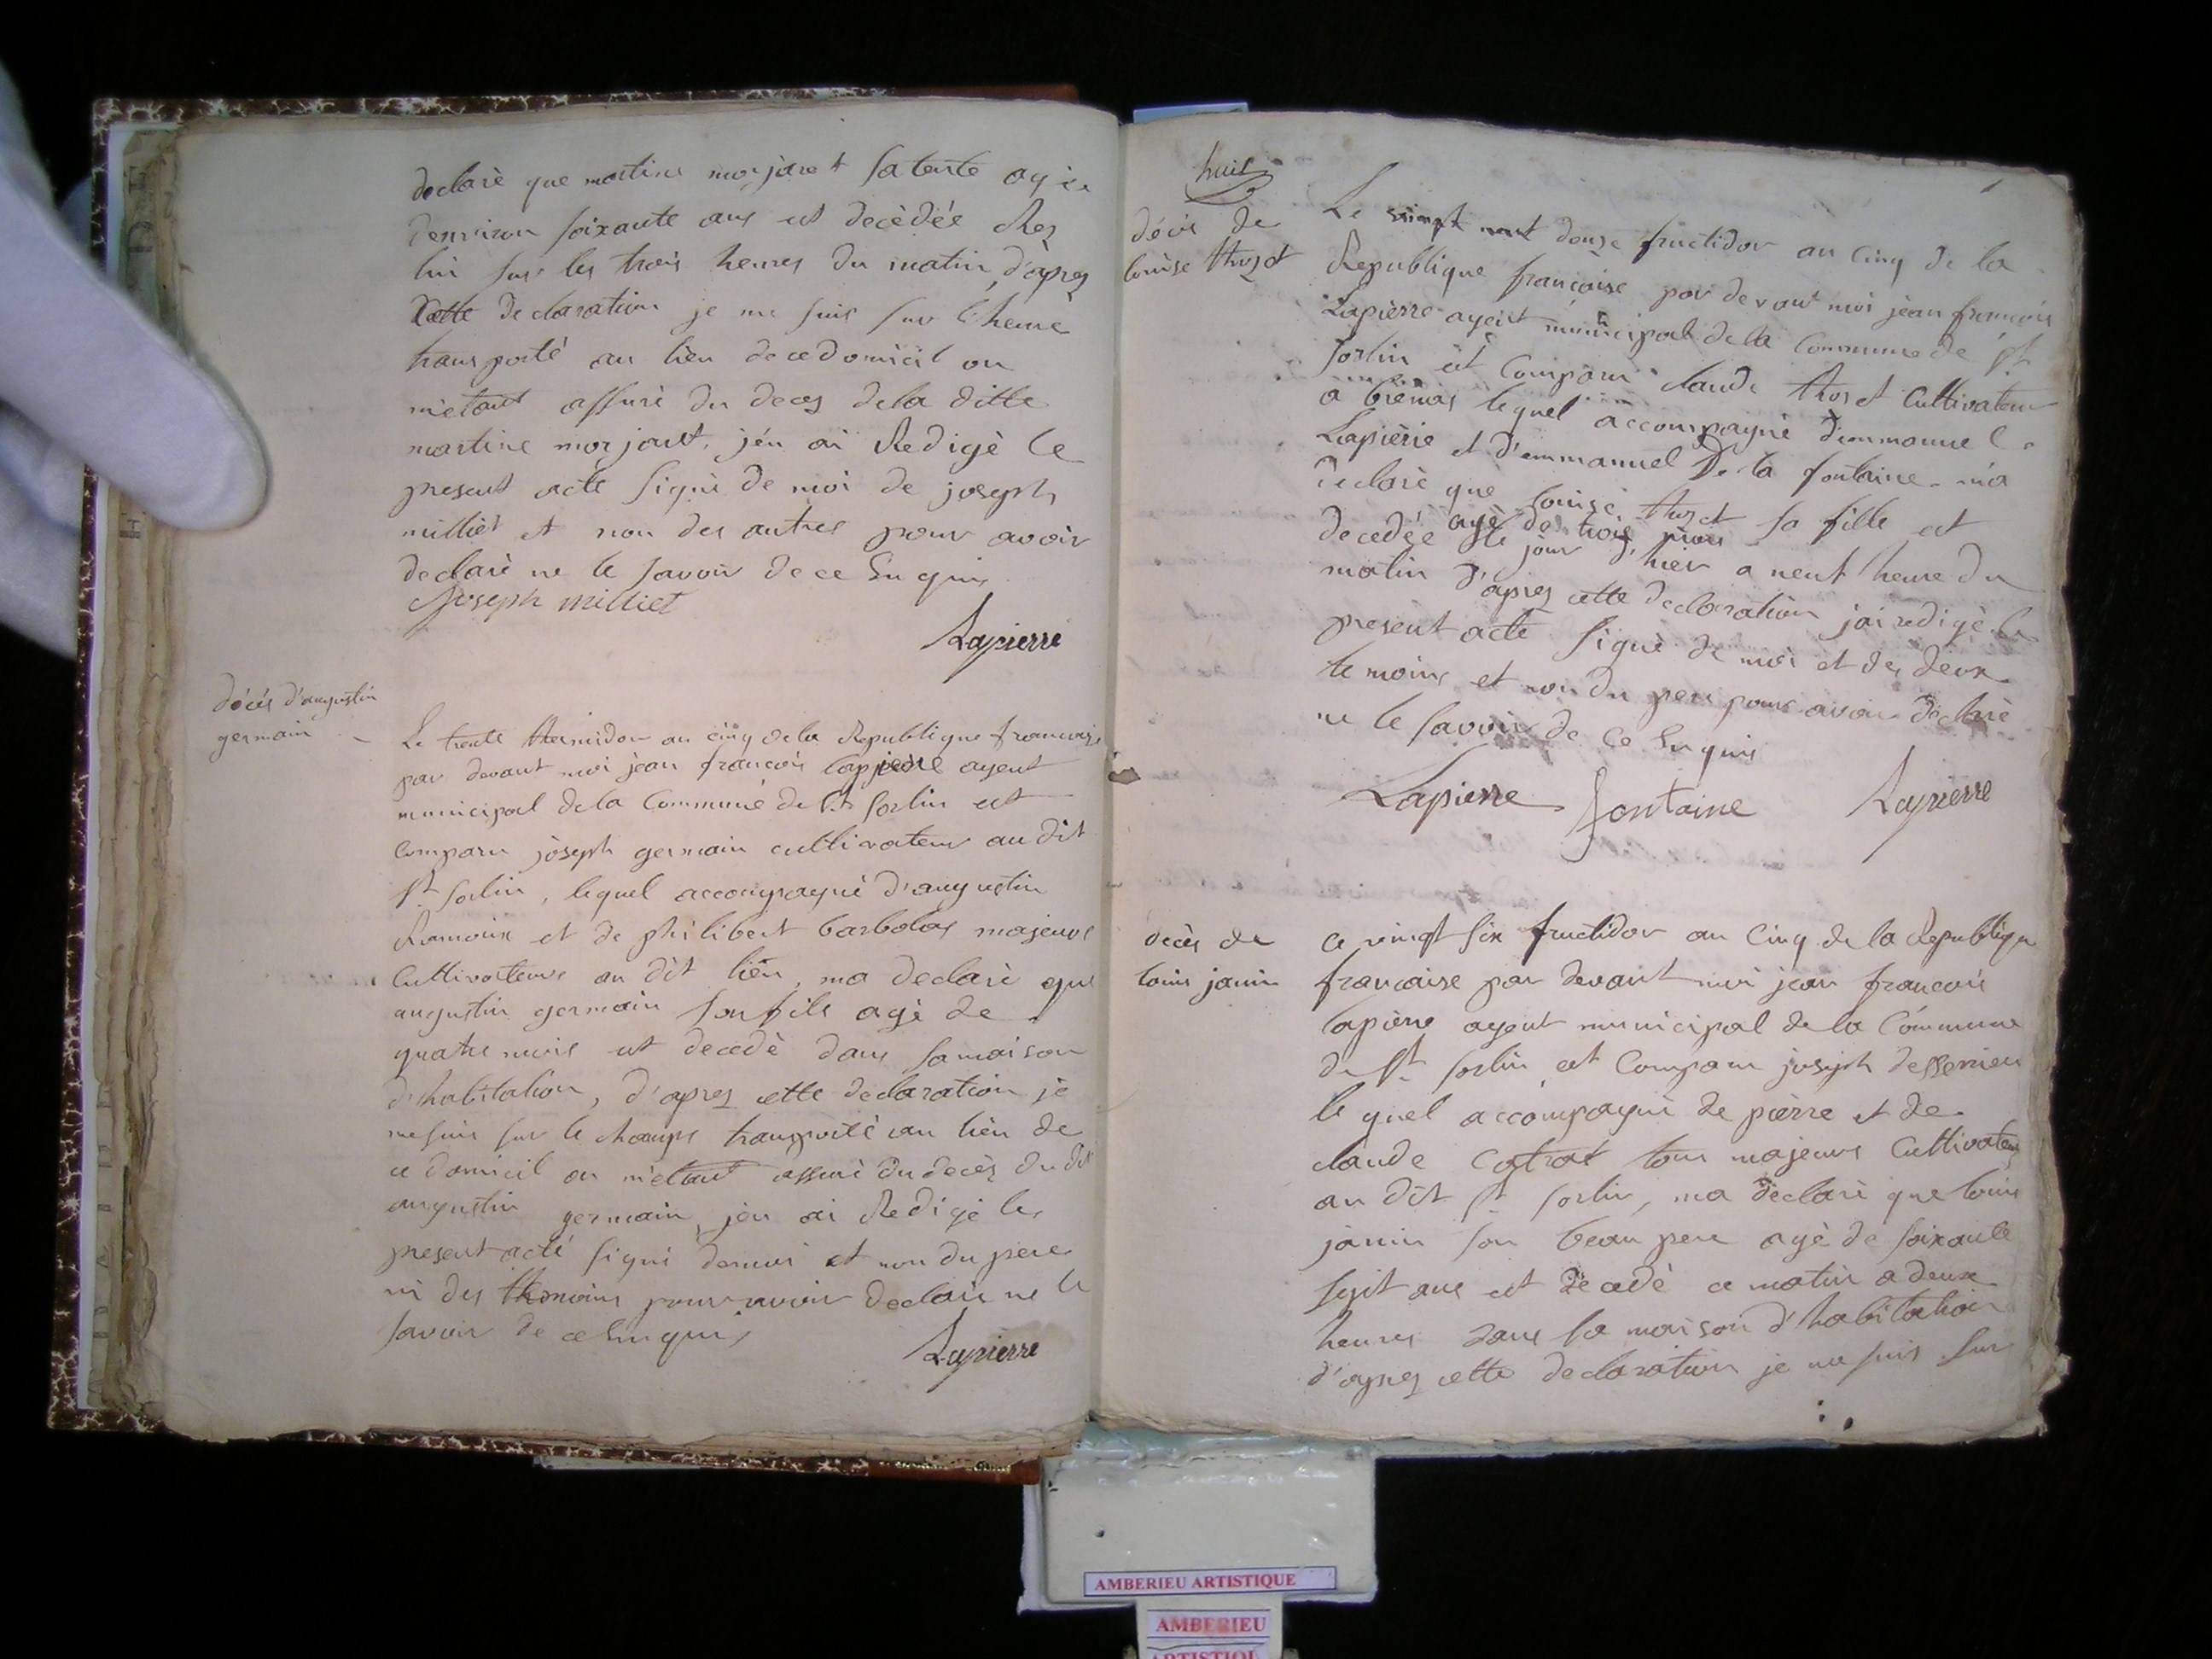 declarè que martine morjaret sa tente agèe
denviron soixante ans est decèdée chez
lui sur les trois heures du matin, d'après
Cette declaration je me suis sur l'heure
transporté au lieu de ce domicil ou
m'etant assuré du deces de la ditte
martine morjaret, j'en ai Redigè le
present acte signè de moi de joseph
milliet et non des autres pour avoir
declarè ne le savoir de ce Enquis
Joseph milliet
Lapierre
décés d'augustin
germain
Le trente thermidor an cinq de la Republique francaise
par devant moi jean francois lapierre agent
municipal de la Commune de St Sorlin est
comparu joseph germain cultivateur au dit
St sorlin, lequel accompagné d'augustin
Ramoux et de philibert barbolas majeurs
Cultivateurs au dit lieu, ma declarè que
augustin germain son fils agè de
quatre mois est decedè dans sa maison
d'habitation, d'apres cette declaration je
me suis sur le champs transporté au lieu de
ce domicil ou m'etant assurè du decès du dit
augustin germain, j'en ai Redigè le
present acte signé de moi et non du pere
ni des themoins pour avoir declarè ne le
savoir de ce Enquis
Lapierre
huit
décès de
louise thozet
Le douze fructidor an Cinq de la
Republique française par devant moi jean francois
Lapierre agent municipal de la Commune de St
sorlin est Comparu claude thozet Cultivateur
a bremas lequel accompagnè d'emmanuel
Lapierre et d'emmanuel De la fontaine m'a
declarè que louise thozet sa fille est
agè de trois mois
decedée le jour d'hier a neuf heure du
matin d'apres cette declaration j'ai redigè le
present acte signè de moi et des deux
temoins et non du pere pour avoir declarè
ne le savoir de ce Enquis
Lapierre fontaine Lapierre
decès de
louis janin
Ce vingt six fructidor an Cinq de la Republique
francaise par devant moi jean francois
lapierre agent municipal de la Commune
de St sorlin est Comparu joseph
le quel accompagnè de pierre et de
claude tous majeurs Cultivateurs
au dit St sorlin, ma declarè que louis
janin son beau pere agè de soixante
sept ans est decedè ce matin a deux
heures dans sa maison d'habitation
d'apres cette declaration je me suis sur
AMBERIEU ARTISTIQUE
AMBERIEU
ARTISTIQUE